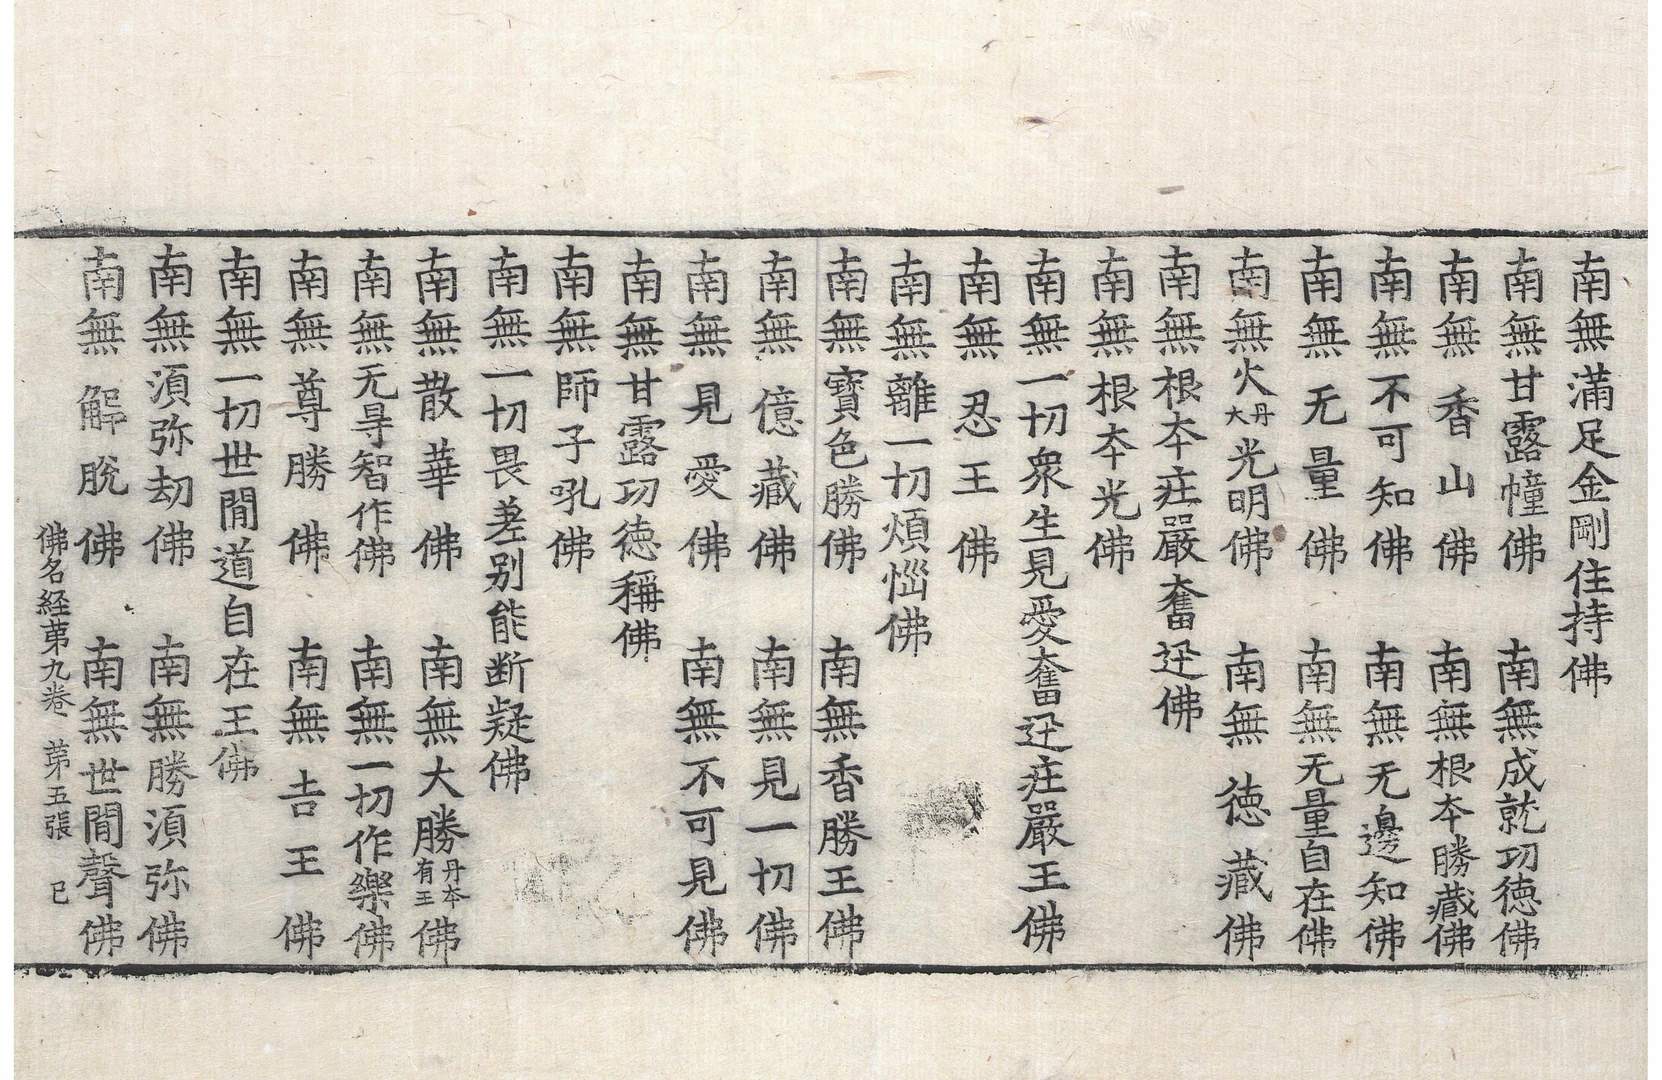 南無滿足金剛住持佛
南無甘露幢佛 南無成就功德佛
南無香山佛 南無根本勝藏佛
南無不可知佛 南無无邊知佛
南無无量佛 南無无量自在佛
南無火丹大光明佛 南無德藏佛
南無根本莊嚴奮迅佛
南無根本光佛
南無一切衆生見愛奮迅莊嚴王佛
南無忍王佛
南無離一切煩惱佛
南無寶色勝佛 南無香勝王佛
南無億藏佛 南無見一切佛
南無見愛佛 南無不可見佛
南無甘露功德稱佛
南無師子吼佛
南無一切畏差别能断疑佛
南無散華佛 南無大勝丹本有王佛
南無无㝵智作佛 南無一切作樂佛
南無尊勝佛 南無吉王佛
南無一切世間道自在王佛
南無湏弥劫佛 南無勝湏弥佛
南無解脫佛 南無世間聲佛
佛名経苐九卷 苐五張 巳